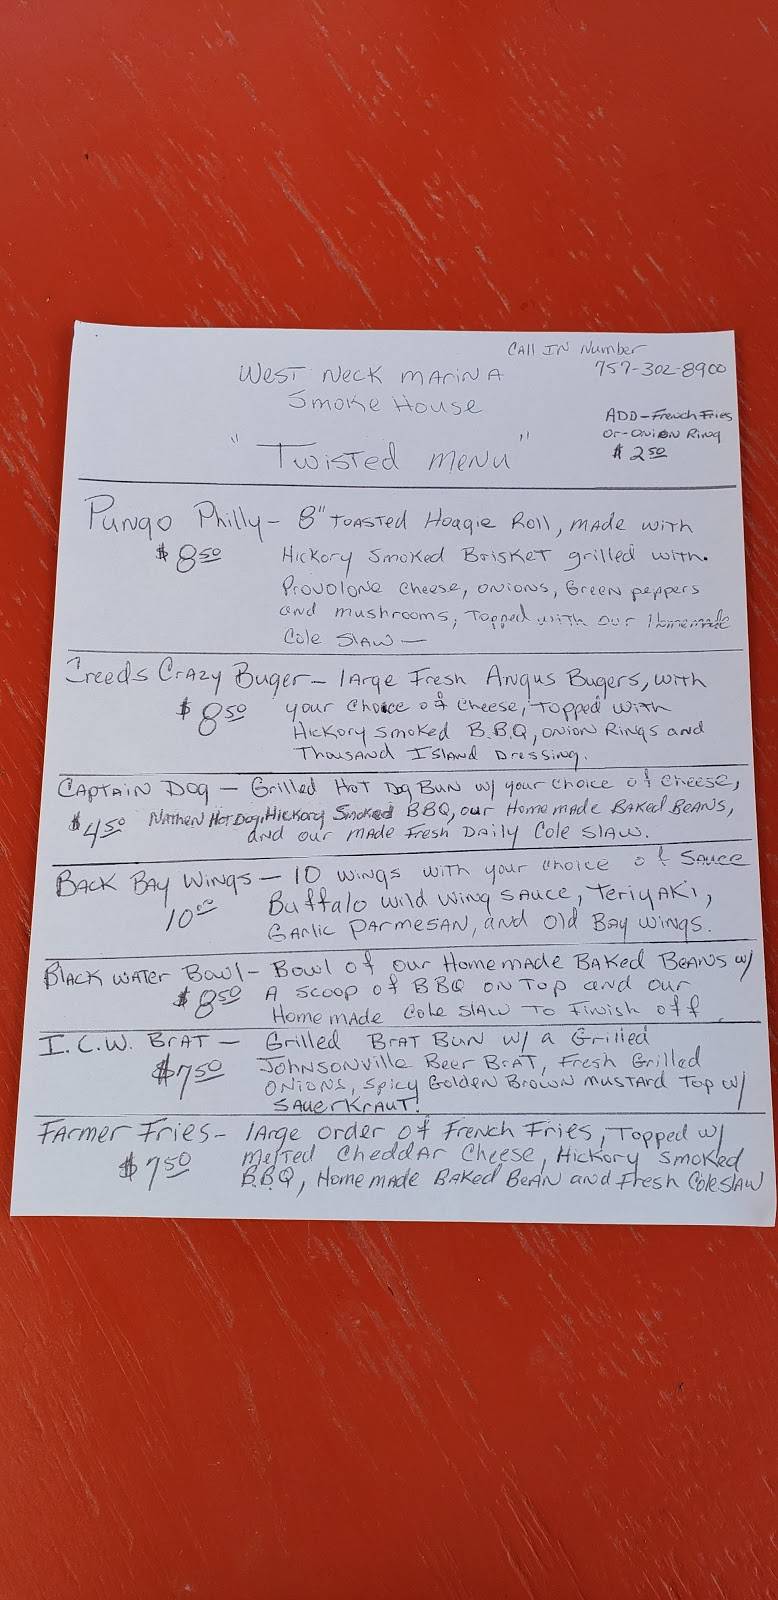 Call In Number
757-302-8900
West Neck Marina
Smoke House
"Twisted Menu"
ADD-French Fries
or-onion Ring
$2.50
Pungo Philly - 8" Toasted Hoagie Roll, made with
$8.50 Hickory Smoked Brisket grilled with
Provolone cheese, onions, Green peppers
and mushrooms, Topped with our Homemade
Cole Slaw -
Creeds Crazy Buger - large Fresh Angus Bugers, with
$8.50 your choice of cheese, Topped with
Hickory Smoked B.B.Q, onion Rings and
Thousand Island Dressing.
Captain Dog - Grilled Hot Dog Bun w/ your choice of cheese,
$4.50 Nathen Hot Dog, Hickory Smoked BBQ, our Homemade Baked Beans,
and our made Fresh Daily Cole Slaw.
Back Bay Wings - 10 wings with your choice of Sauce
10.00 Buffalo wild wing sauce, Teriyaki,
Garlic Parmesan, and Old Bay wings.
Black Water Bowl - Bowl of our Homemade Baked Beans w/
$8.50 A scoop of BBQ on Top and our
Homemade Cole Slaw To Finish off.
I.C.W. Brat - Grilled Brat Bun w/ a Grilled
$7.50 Johnsonville Beer Brat, Fresh Grilled
onions, spicy Golden Brown mustard Top w/
Sauerkraut!
Farmer Fries - large order of French Fries, Topped w/
$7.50 melted Cheddar Cheese, Hickory smoked
B.B.Q, Homemade Baked Bean and Fresh Cole Slaw